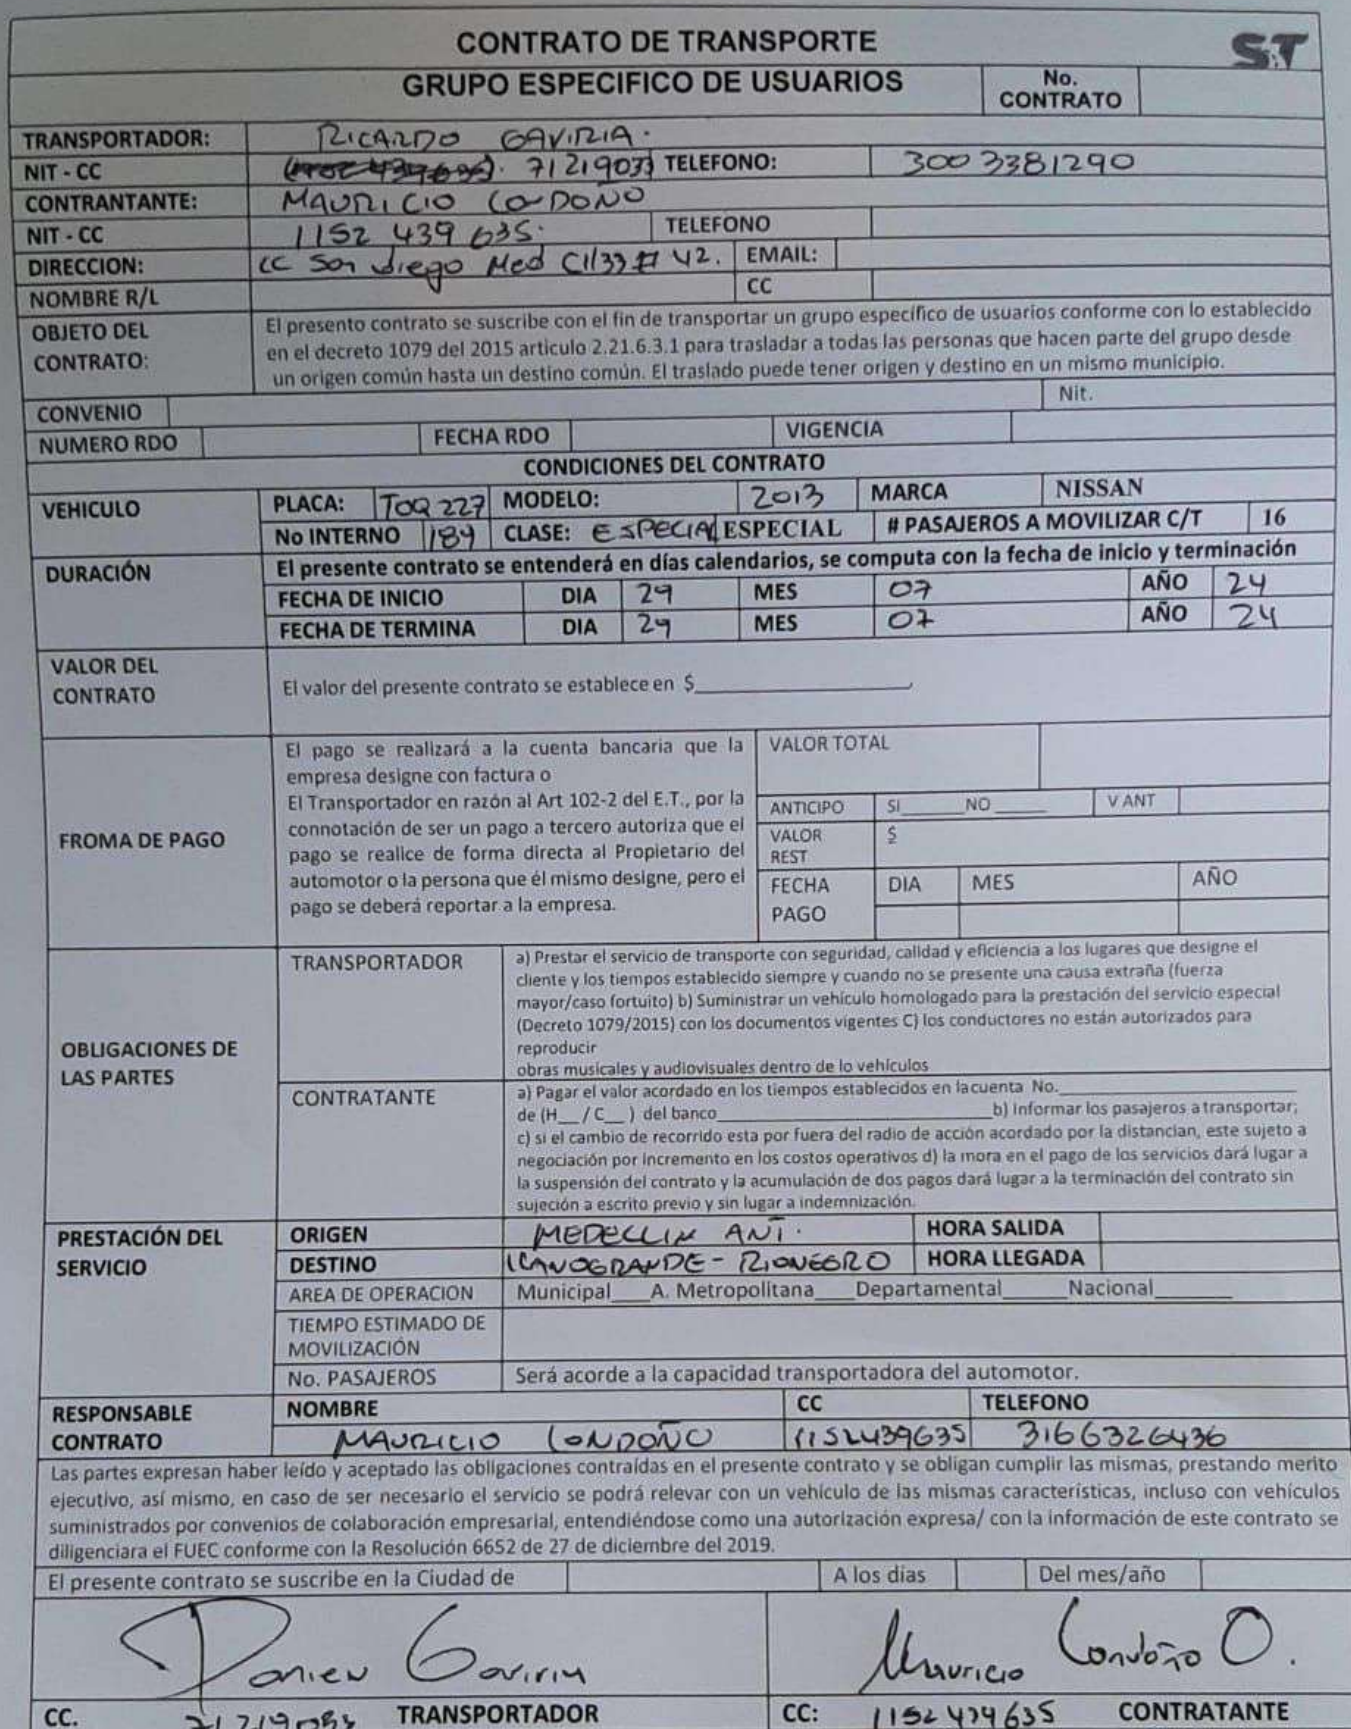 CONTRATO DE TRANSPORTE
S&T
GRUPO ESPECIFICO DE USUARIOS No. CONTRATO
TRANSPORTADOR: RICARDO GAVIRIA.
NIT - CC 71219033 TELEFONO: 300 3381290
CONTRANTANTE: MAURICIO LONDOÑO
NIT - CC 1152 439 635. TELEFONO
DIRECCION: CC San diego Med Cll33 # 42. EMAIL:
NOMBRE R/L CC
OBJETO DEL CONTRATO: El presento contrato se suscribe con el fin de transportar un grupo específico de usuarios conforme con lo establecido
en el decreto 1079 del 2015 articulo 2.21.6.3.1 para trasladar a todas las personas que hacen parte del grupo desde
un origen común hasta un destino común. El traslado puede tener origen y destino en un mismo municipio.
CONVENIO Nit.
NUMERO RDO FECHA RDO VIGENCIA
CONDICIONES DEL CONTRATO
VEHICULO PLACA: TOQ 227 MODELO: 2013 MARCA NISSAN
No INTERNO 184 CLASE: ESPECIAL ESPECIAL # PASAJEROS A MOVILIZAR C/T 16
DURACIÓN El presente contrato se entenderá en días calendarios, se computa con la fecha de inicio y terminación
FECHA DE INICIO DIA 29 MES 07 AÑO 24
FECHA DE TERMINA DIA 29 MES 07 AÑO 24
VALOR DEL CONTRATO El valor del presente contrato se establece en $
FROMA DE PAGO
El pago se realizará a la cuenta bancaria que la
empresa designe con factura o
El Transportador en razón al Art 102-2 del E.T., por la
connotación de ser un pago a tercero autoriza que el
pago se realice de forma directa al Propietario del
automotor o la persona que él mismo designe, pero el
pago se deberá reportar a la empresa.
VALOR TOTAL
ANTICIPO SI______NO______ V ANT
VALOR REST $
FECHA PAGO DIA MES AÑO
OBLIGACIONES DE LAS PARTES
TRANSPORTADOR a) Prestar el servicio de transporte con seguridad, calidad y eficiencia a los lugares que designe el
cliente y los tiempos establecido siempre y cuando no se presente una causa extraña (fuerza
mayor/caso fortuito) b) Suministrar un vehículo homologado para la prestación del servicio especial
(Decreto 1079/2015) con los documentos vigentes C) los conductores no están autorizados para
reproducir
obras musicales y audiovisuales dentro de lo vehículos
CONTRATANTE a) Pagar el valor acordado en los tiempos establecidos en lacuenta No.
de (H__ / C__ ) del banco______b) Informar los pasajeros a transportar;
c) si el cambio de recorrido esta por fuera del radio de acción acordado por la distancian, este sujeto a
negociación por incremento en los costos operativos d) la mora en el pago de los servicios dará lugar a
la suspensión del contrato y la acumulación de dos pagos dará lugar a la terminación del contrato sin
sujeción a escrito previo y sin lugar a indemnización.
PRESTACIÓN DEL SERVICIO ORIGEN MEDELLIN ANT. HORA SALIDA
DESTINO LLANOGRANDE - RIONEGRO HORA LLEGADA
AREA DE OPERACION Municipal____A. Metropolitana____Departamental_____Nacional______
TIEMPO ESTIMADO DE MOVILIZACIÓN
No. PASAJEROS Será acorde a la capacidad transportadora del automotor.
RESPONSABLE CONTRATO NOMBRE CC TELEFONO
MAURICIO LONDOÑO 1152439635 3166326436
Las partes expresan haber leído y aceptado las obligaciones contraídas en el presente contrato y se obligan cumplir las mismas, prestando merito
ejecutivo, así mismo, en caso de ser necesario el servicio se podrá relevar con un vehículo de las mismas características, incluso con vehículos
suministrados por convenios de colaboración empresarial, entendiéndose como una autorización expresa/ con la información de este contrato se
diligenciara el FUEC conforme con la Resolución 6652 de 27 de diciembre del 2019.
El presente contrato se suscribe en la Ciudad de A los dias Del mes/año
Daniel Gaviria Mauricio Londoño O.
CC. TRANSPORTADOR CC: 1152 439 635 CONTRATANTE